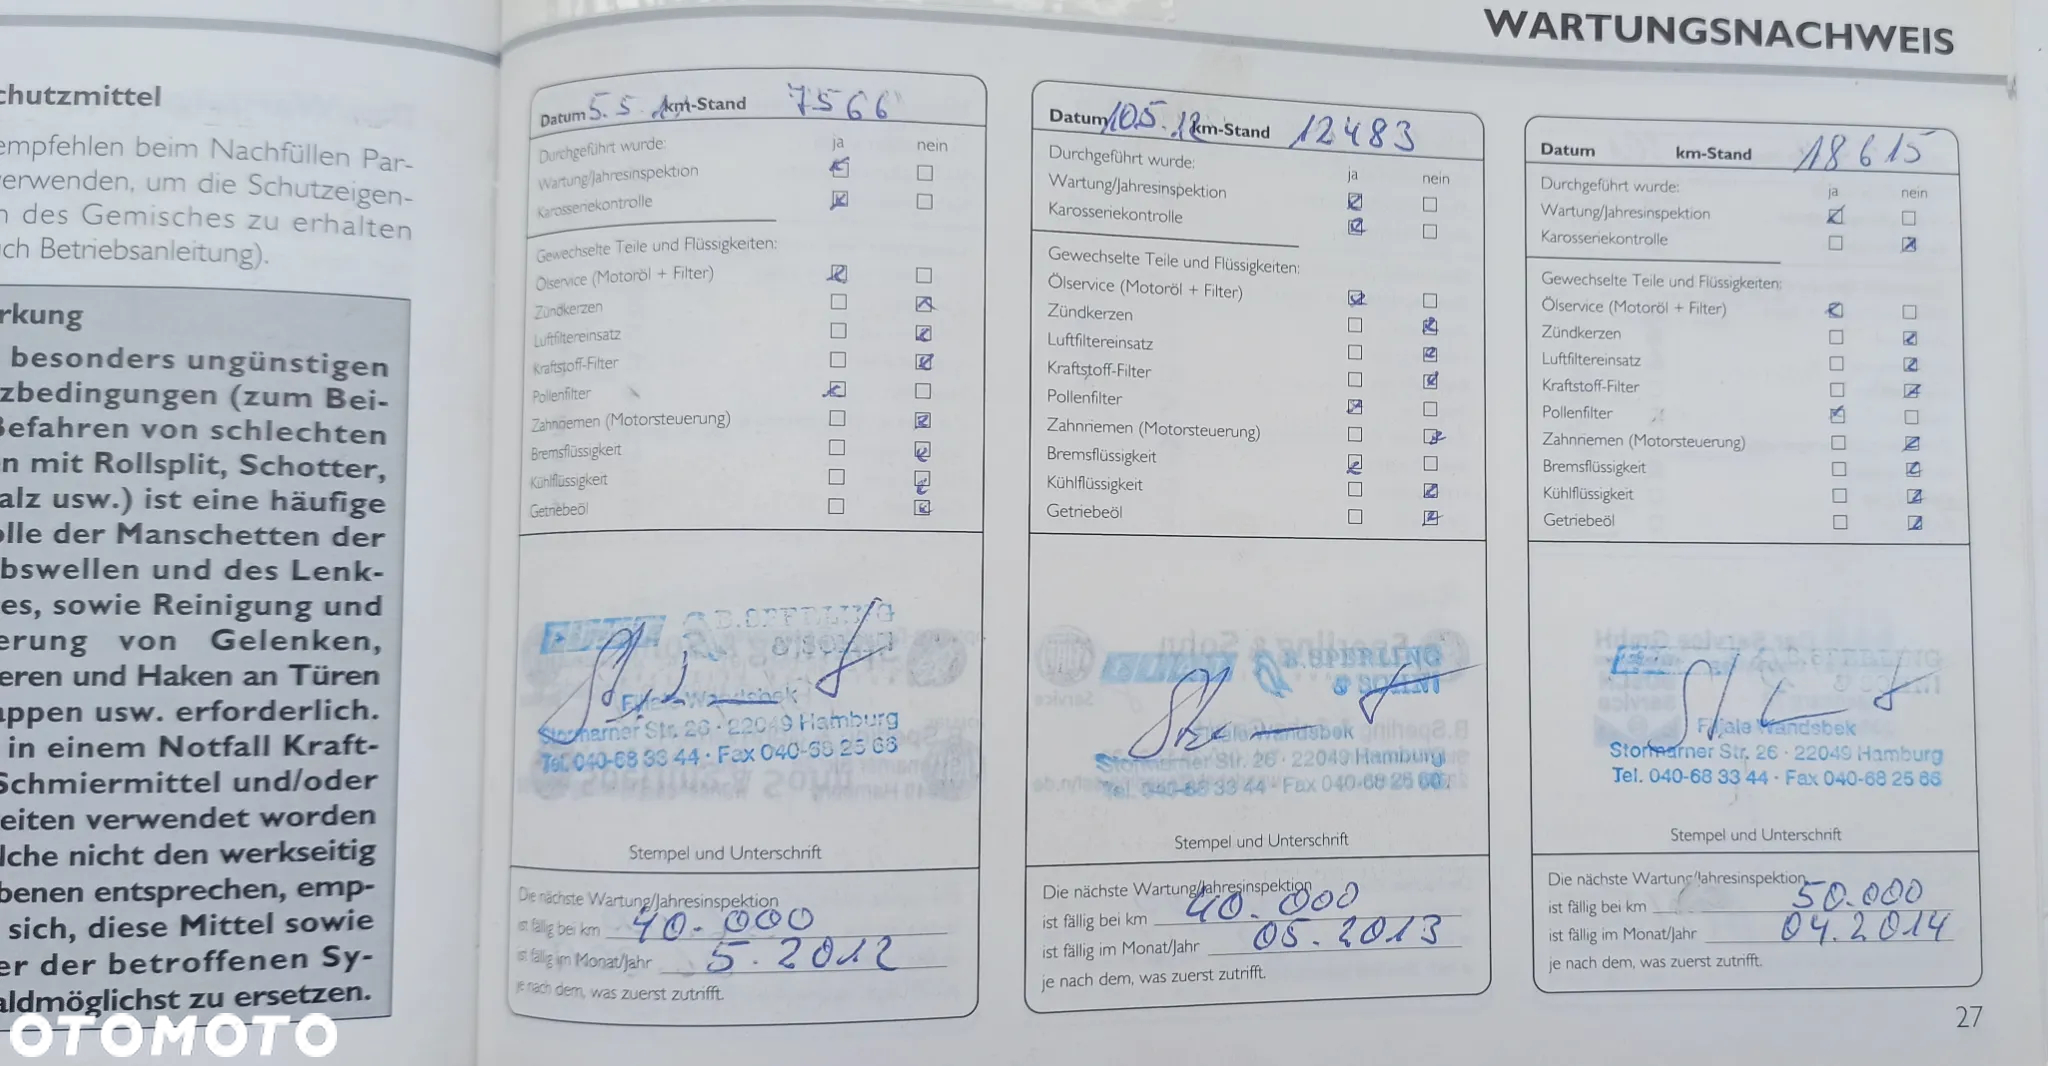 WARTUNGSNACHWEIS
chutzmittel
empfehlen beim Nachfüllen Par-
verwenden, um die Schutzeigen-
n des Gemisches zu erhalten
ch Betriebsanleitung).
rkung
besonders ungünstigen
zbedingungen (zum Bei-
Befahren von schlechten
n mit Rollsplit, Schotter,
alz usw.) ist eine häufige
olle der Manschetten der
bswellen und des Lenk-
es, sowie Reinigung und
erung von Gelenken,
eren und Haken an Türen
appen usw. erforderlich.
in einem Notfall Kraft-
Schmiermittel und/oder
eiten verwendet worden
lche nicht den werkseitig
benen entsprechen, emp-
sich, diese Mittel sowie
er der betroffenen Sy-
aldmöglichst zu ersetzen.
OTOMOTO
Datum 5.5.11 km-Stand 7566
Durchgeführt wurde: ja nein
Wartung/Jahresinspektion
Karosseriekontrolle
Gewechselte Teile und Flüssigkeiten:
Ölservice (Motoröl + Filter)
Zündkerzen
Luftfiltereinsatz
Kraftstoff-Filter
Pollenfilter
Zahnriemen (Motorsteuerung)
Bremsflüssigkeit
Kühlflüssigkeit
Getriebeöl
B.SPERLING
& SOHN
Filiale Wandsbek
Stormarner Str. 26 · 22049 Hamburg
Tel. 040-68 33 44 · Fax 040-68 25 66
Stempel und Unterschrift
Die nächste Wartung/Jahresinspektion
ist fällig bei km 40.000
ist fällig im Monat/Jahr 5.2012
je nach dem, was zuerst zutrifft.
Datum 10.5.12 km-Stand 12483
Durchgeführt wurde: ja nein
Wartung/Jahresinspektion
Karosseriekontrolle
Gewechselte Teile und Flüssigkeiten:
Ölservice (Motoröl + Filter)
Zündkerzen
Luftfiltereinsatz
Kraftstoff-Filter
Pollenfilter
Zahnriemen (Motorsteuerung)
Bremsflüssigkeit
Kühlflüssigkeit
Getriebeöl
B.SPERLING
& SOHN
Filiale Wandsbek
Stormarner Str. 26 · 22049 Hamburg
Tel. 040-68 33 44 · Fax 040-68 25 66
Stempel und Unterschrift
Die nächste Wartung/Jahresinspektion
ist fällig bei km 40.000
ist fällig im Monat/Jahr 05.2013
je nach dem, was zuerst zutrifft.
Datum km-Stand 18615
Durchgeführt wurde: ja nein
Wartung/Jahresinspektion
Karosseriekontrolle
Gewechselte Teile und Flüssigkeiten:
Ölservice (Motoröl + Filter)
Zündkerzen
Luftfiltereinsatz
Kraftstoff-Filter
Pollenfilter
Zahnriemen (Motorsteuerung)
Bremsflüssigkeit
Kühlflüssigkeit
Getriebeöl
Filiale Wandsbek
Stormarner Str. 26 · 22049 Hamburg
Tel. 040-68 33 44 · Fax 040-68 25 66
Stempel und Unterschrift
Die nächste Wartung/Jahresinspektion
ist fällig bei km 50.000
ist fällig im Monat/Jahr 04.2014
je nach dem, was zuerst zutrifft.
27